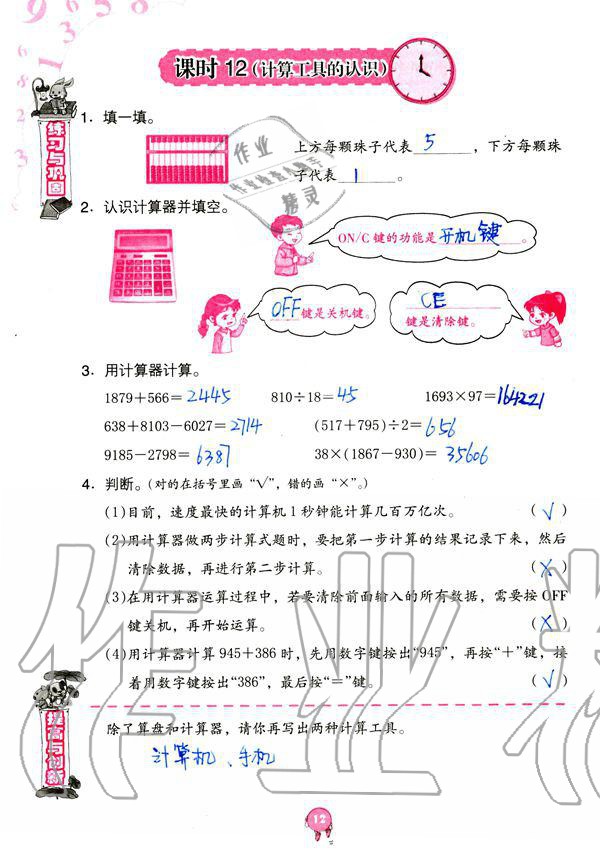 课时 12(计算工具的认识)
练习与巩固
1. 填一填。
上方每颗珠子代表 5 ，下方每颗珠
子代表 1 。
作业
作业检查小助手
精灵
2. 认识计算器并填空。
ON/C 键的功能是开机键。
OFF键是关机键。
CE
键是清除键。
3. 用计算器计算。
1879＋566＝2445 810÷18＝45 1693×97＝164221
638＋8103－6027＝2714 (517＋795)÷2＝656
9185－2798＝6387 38×(1867－930)＝35606
4. 判断。(对的在括号里画“√”，错的画“×”。)
(1)目前，速度最快的计算机1秒钟能计算几百万亿次。 (√)
(2)用计算器做两步计算式题时，要把第一步计算的结果记录下来，然后
清除数据，再进行第二步计算。 (×)
(3)在用计算器运算过程中，若要清除前面输入的所有数据，需要按OFF
键关机，再开始运算。 (×)
(4)用计算器计算945＋386时，先用数字键按出“945”，再按“＋”键，接
着用数字键按出“386”，最后按“＝”键。 (√)
提高与创新
除了算盘和计算器，请你再写出两种计算工具。
计算机、手机
作业精
12